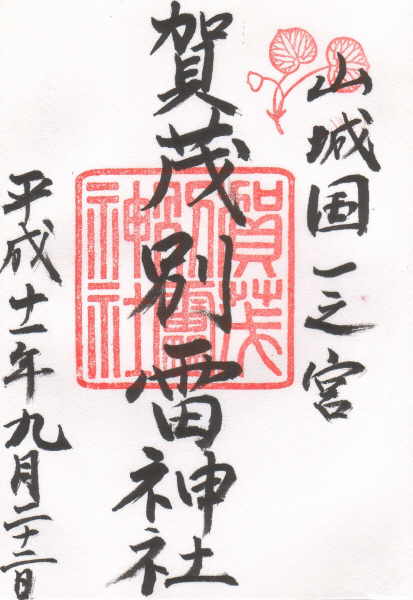 山城国一之宮
賀茂別雷神社
平成十一年九月二十二日
賀茂別雷神社